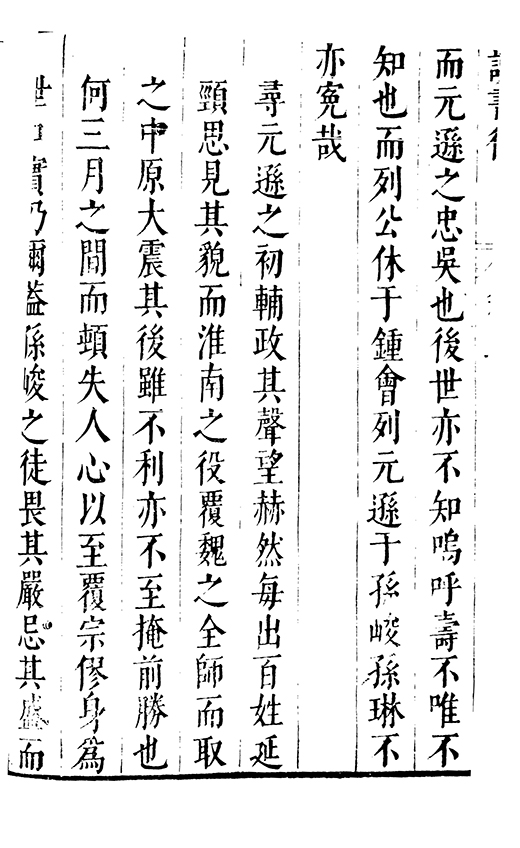 讀書後
而元遜之忠吳也後世亦不知嗚呼壽不唯不
知也而列公休于鍾會列元遜于孫峻孫琳不
亦寃哉
尋元遜之初輔政其聲望赫然每出百姓延
頸思見其貌而淮南之役覆魏之全師而取
之中原大震其後雖不利亦不至掩前勝也
何三月之間而頓失人心以至覆宗僇身爲
世口實乃爾葢係峻之徒畏其嚴忌其盛而